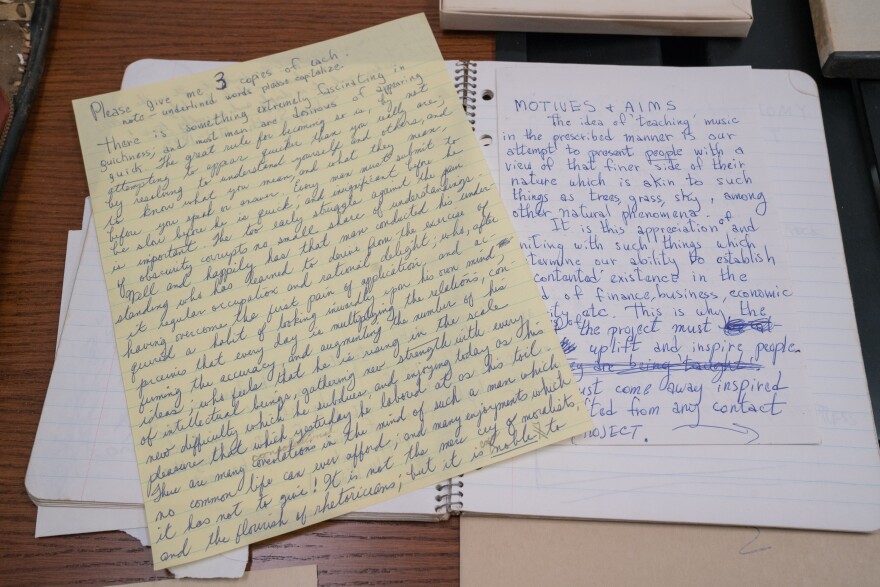 Please give me 3 copies of each.
note - underlined words please capitalize.
There is something extremely fascinating in
quickness, and most men are desirous of appearing
quick. The great rule for becoming so is, by not
attempting to appear quicker than you really are;
by resolving to understand yourself and others, and
to know what you mean, and what they mean,
before you speak or answer. Every man must submit to
be slow before he is quick; and insignificant before he
is important. The too early struggle against the pain
of obscurity corrupts no small share of understandings.
Well and happily has that man conducted his under
standing who has learned to derive from the exercise of
it regular occupation and rational delight; who, after
having overcome the first pain of application, and ac
quired a habit of looking inwardly upon his own mind,
perceives that every day is multiplying the relations, con
firming the accuracy, and augmenting the number of his
ideas; who feels that he is rising in the scale
of intellectual beings, gathering new strength with every
new difficulty which he subdues, and enjoying today as his
pleasure that which yesterday he labored at as his toil.
There are many consolations in the mind of such a man which
no common life can ever afford; and many enjoyments which
it has not to give! It is not the mere cry of moralists,
and the flourish of rhetoricians; but it is noble to
MOTIVES + AIMS
The idea of 'teaching' music
in the prescribed manner is our
attempt to present people with a
view of that finer side of their
nature which is akin to such
things as trees, grass, sky, among
other natural phenomena.
It is this appreciation of and
niting with such things which
termine our ability to establish
contented existence in the
of finance, business, economic
ity, etc. This is why the
the project must
uplift and inspire people.
y are being 'taught'
ust come away inspired
ted from any contact
ROJECT.